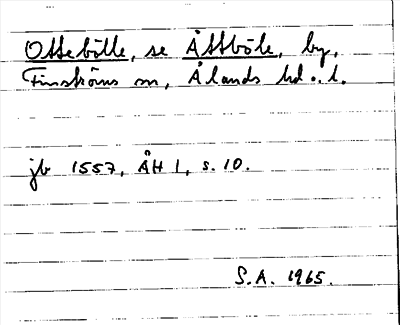 Ottebölle, se Åttböle, by,
Finströms sn, Ålands hd o. l.
jb 1557, ÅH 1, s. 10.
S.A. 1965.